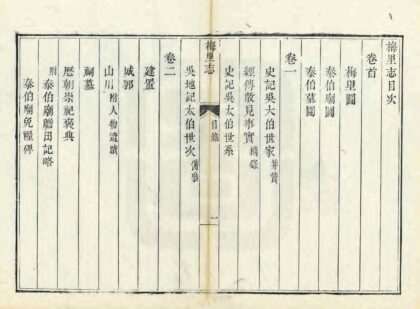 梅里志目次
卷首
梅里圖
泰伯廟圖
泰伯墓圖
卷一
史記吳大伯世家 并贊
經傳散見事實 摘錄
史記吳太伯世系
梅里志 目錄 一
吳地記太伯世次 備攷
卷二
建置
城郭
山川 附人物遺蹟
祠墓
歷朝崇祀褒典
附 泰伯廟贍田記略
泰伯廟免糧碑